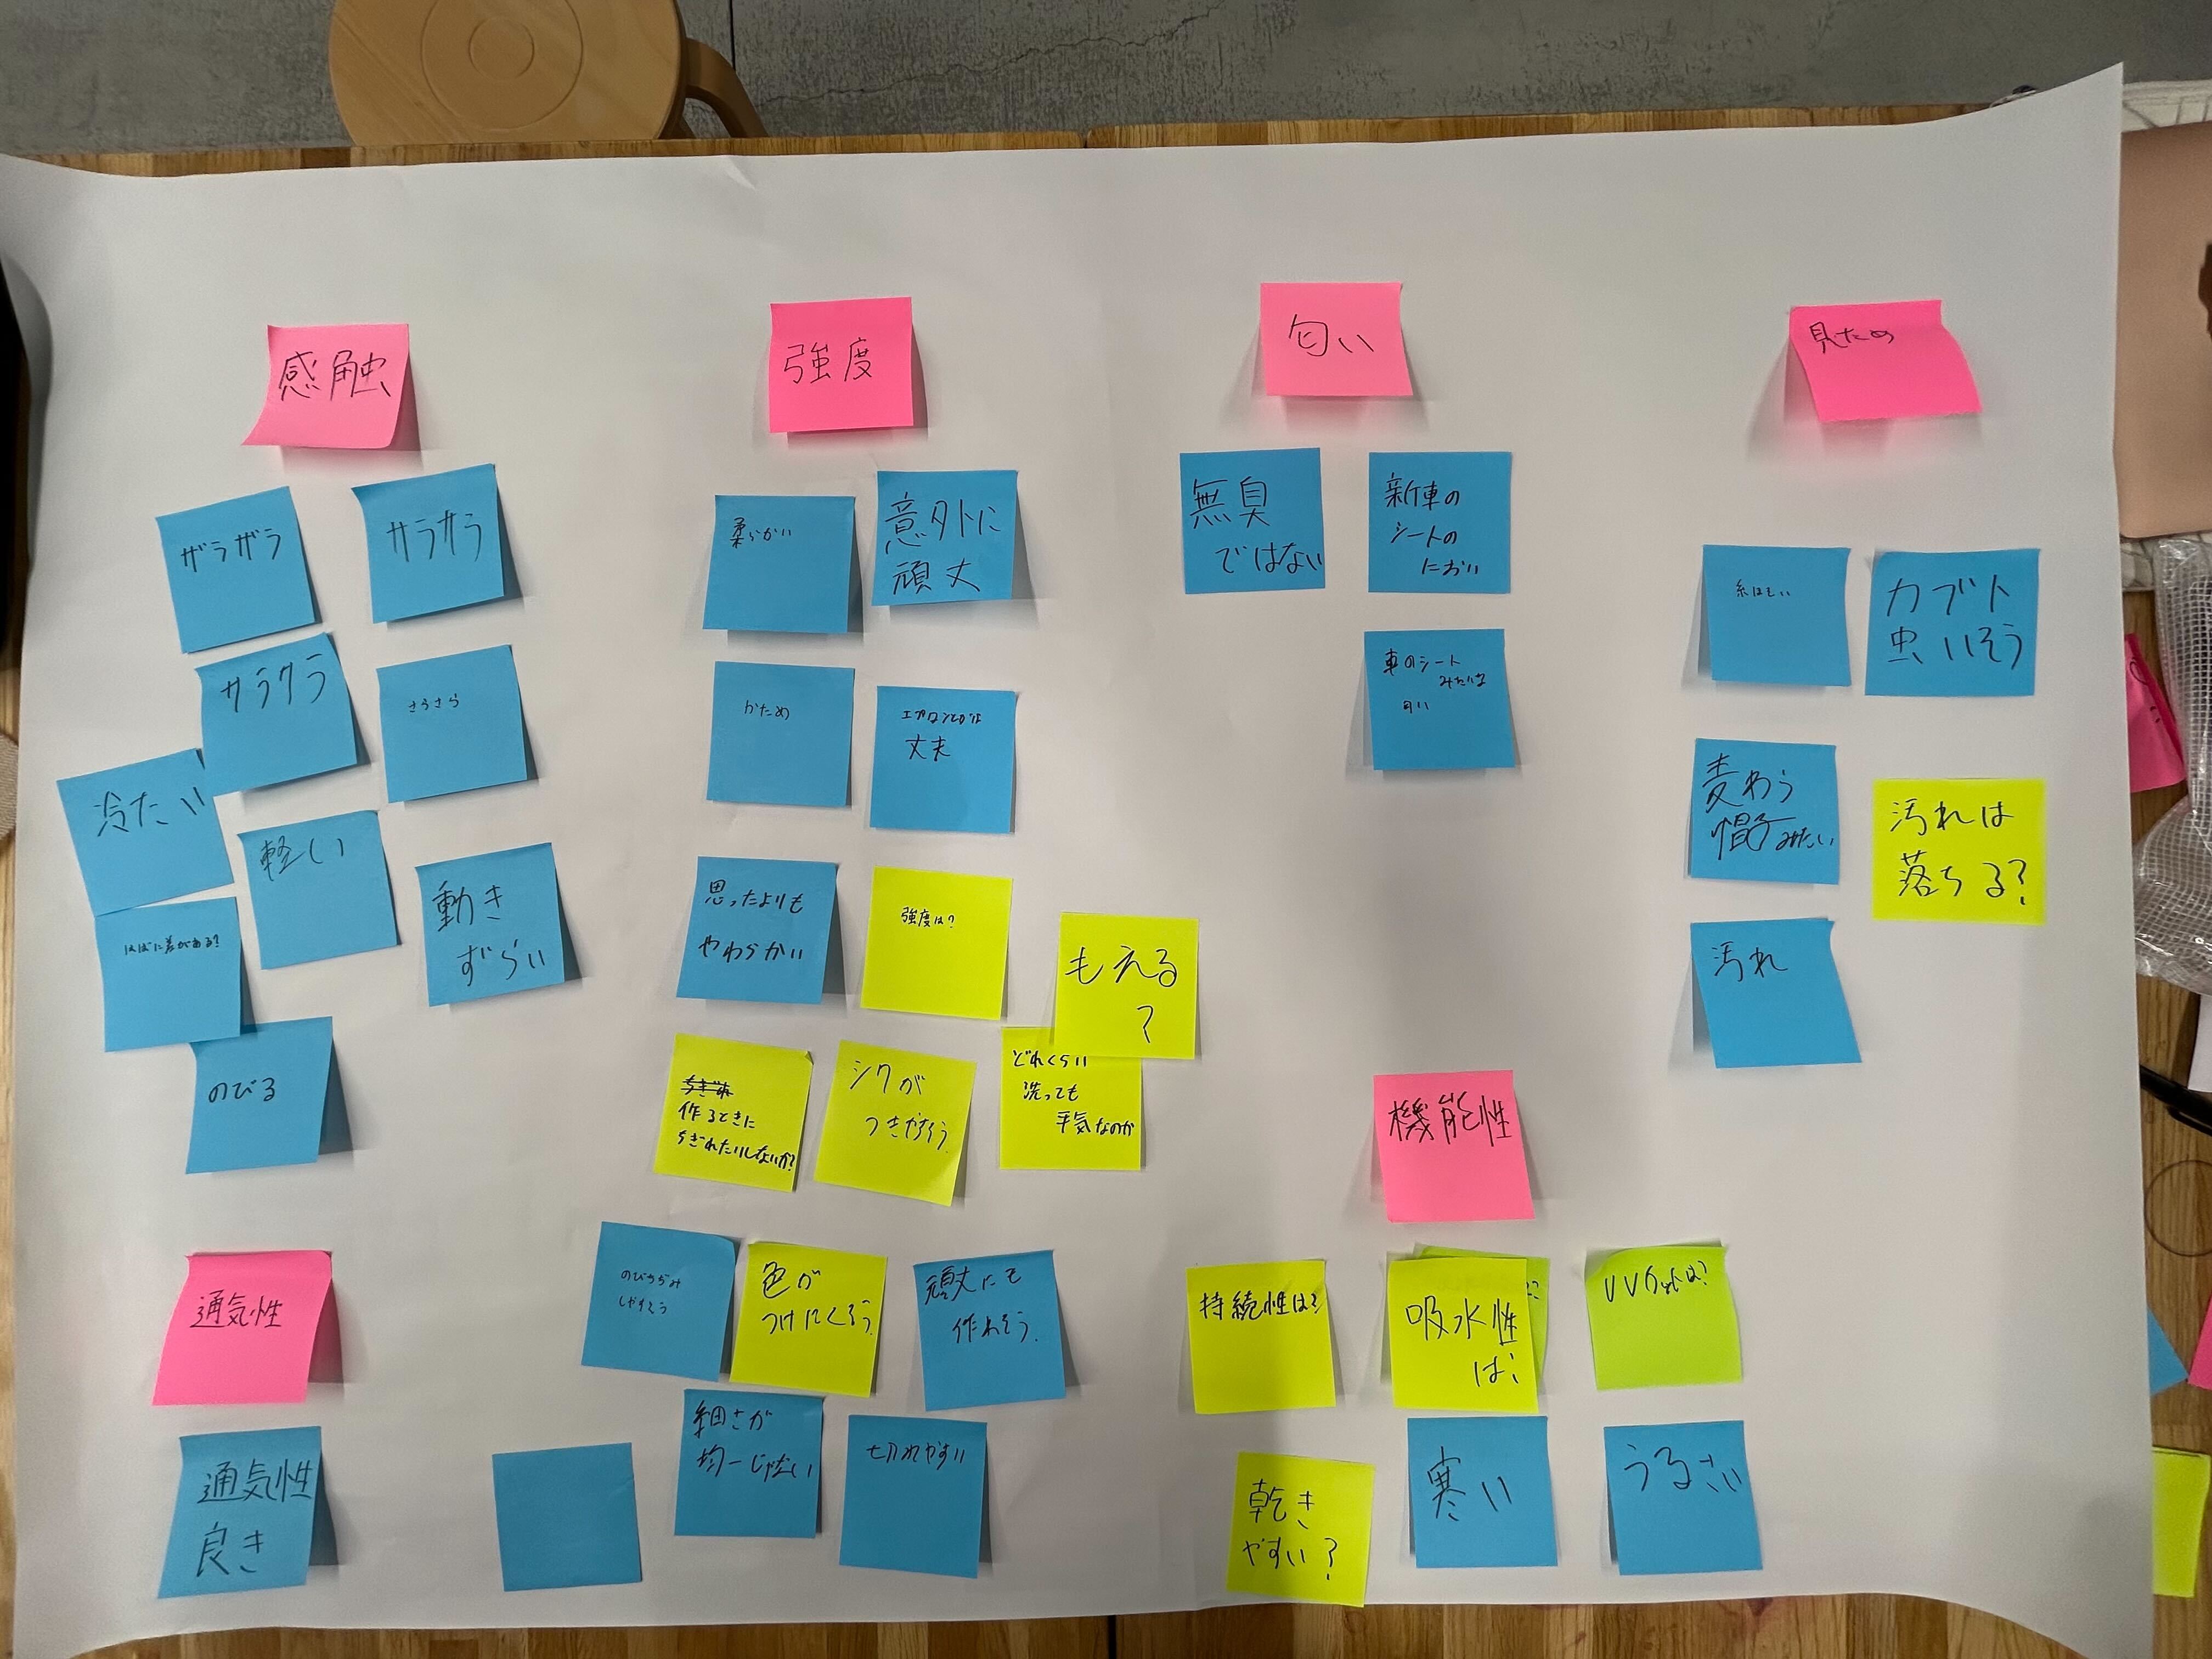 感触
ザラザラ
サラサラ
サラサラ
さらさら
冷たい
軽い
動き
ずらい
はばに差がある?
のびる
通気性
通気性
良き
強度
柔らかい
意外に
頑丈
かため
丈夫
思ったよりも
やわらかい
強度は?
もえる
?
作るときに
ちぎれたりしないか?
シワが
つきやすそう
どれくらい
洗っても
平気なのか
のびちぢみ
しやすそう
色が
つけにくそう.
頑丈にも
作れそう.
細さが
均一じゃない
切れやすい
匂い
無臭
ではない
新車の
シートの
におい
車のシート
みたいな
匂い
見ため
カブト
虫いそう
麦わら
帽子みたい
汚れは
落ちる?
汚れ
機能性
持続性は?
吸水性
は?
UVカットは?
乾き
やすい?
寒い
うるさい